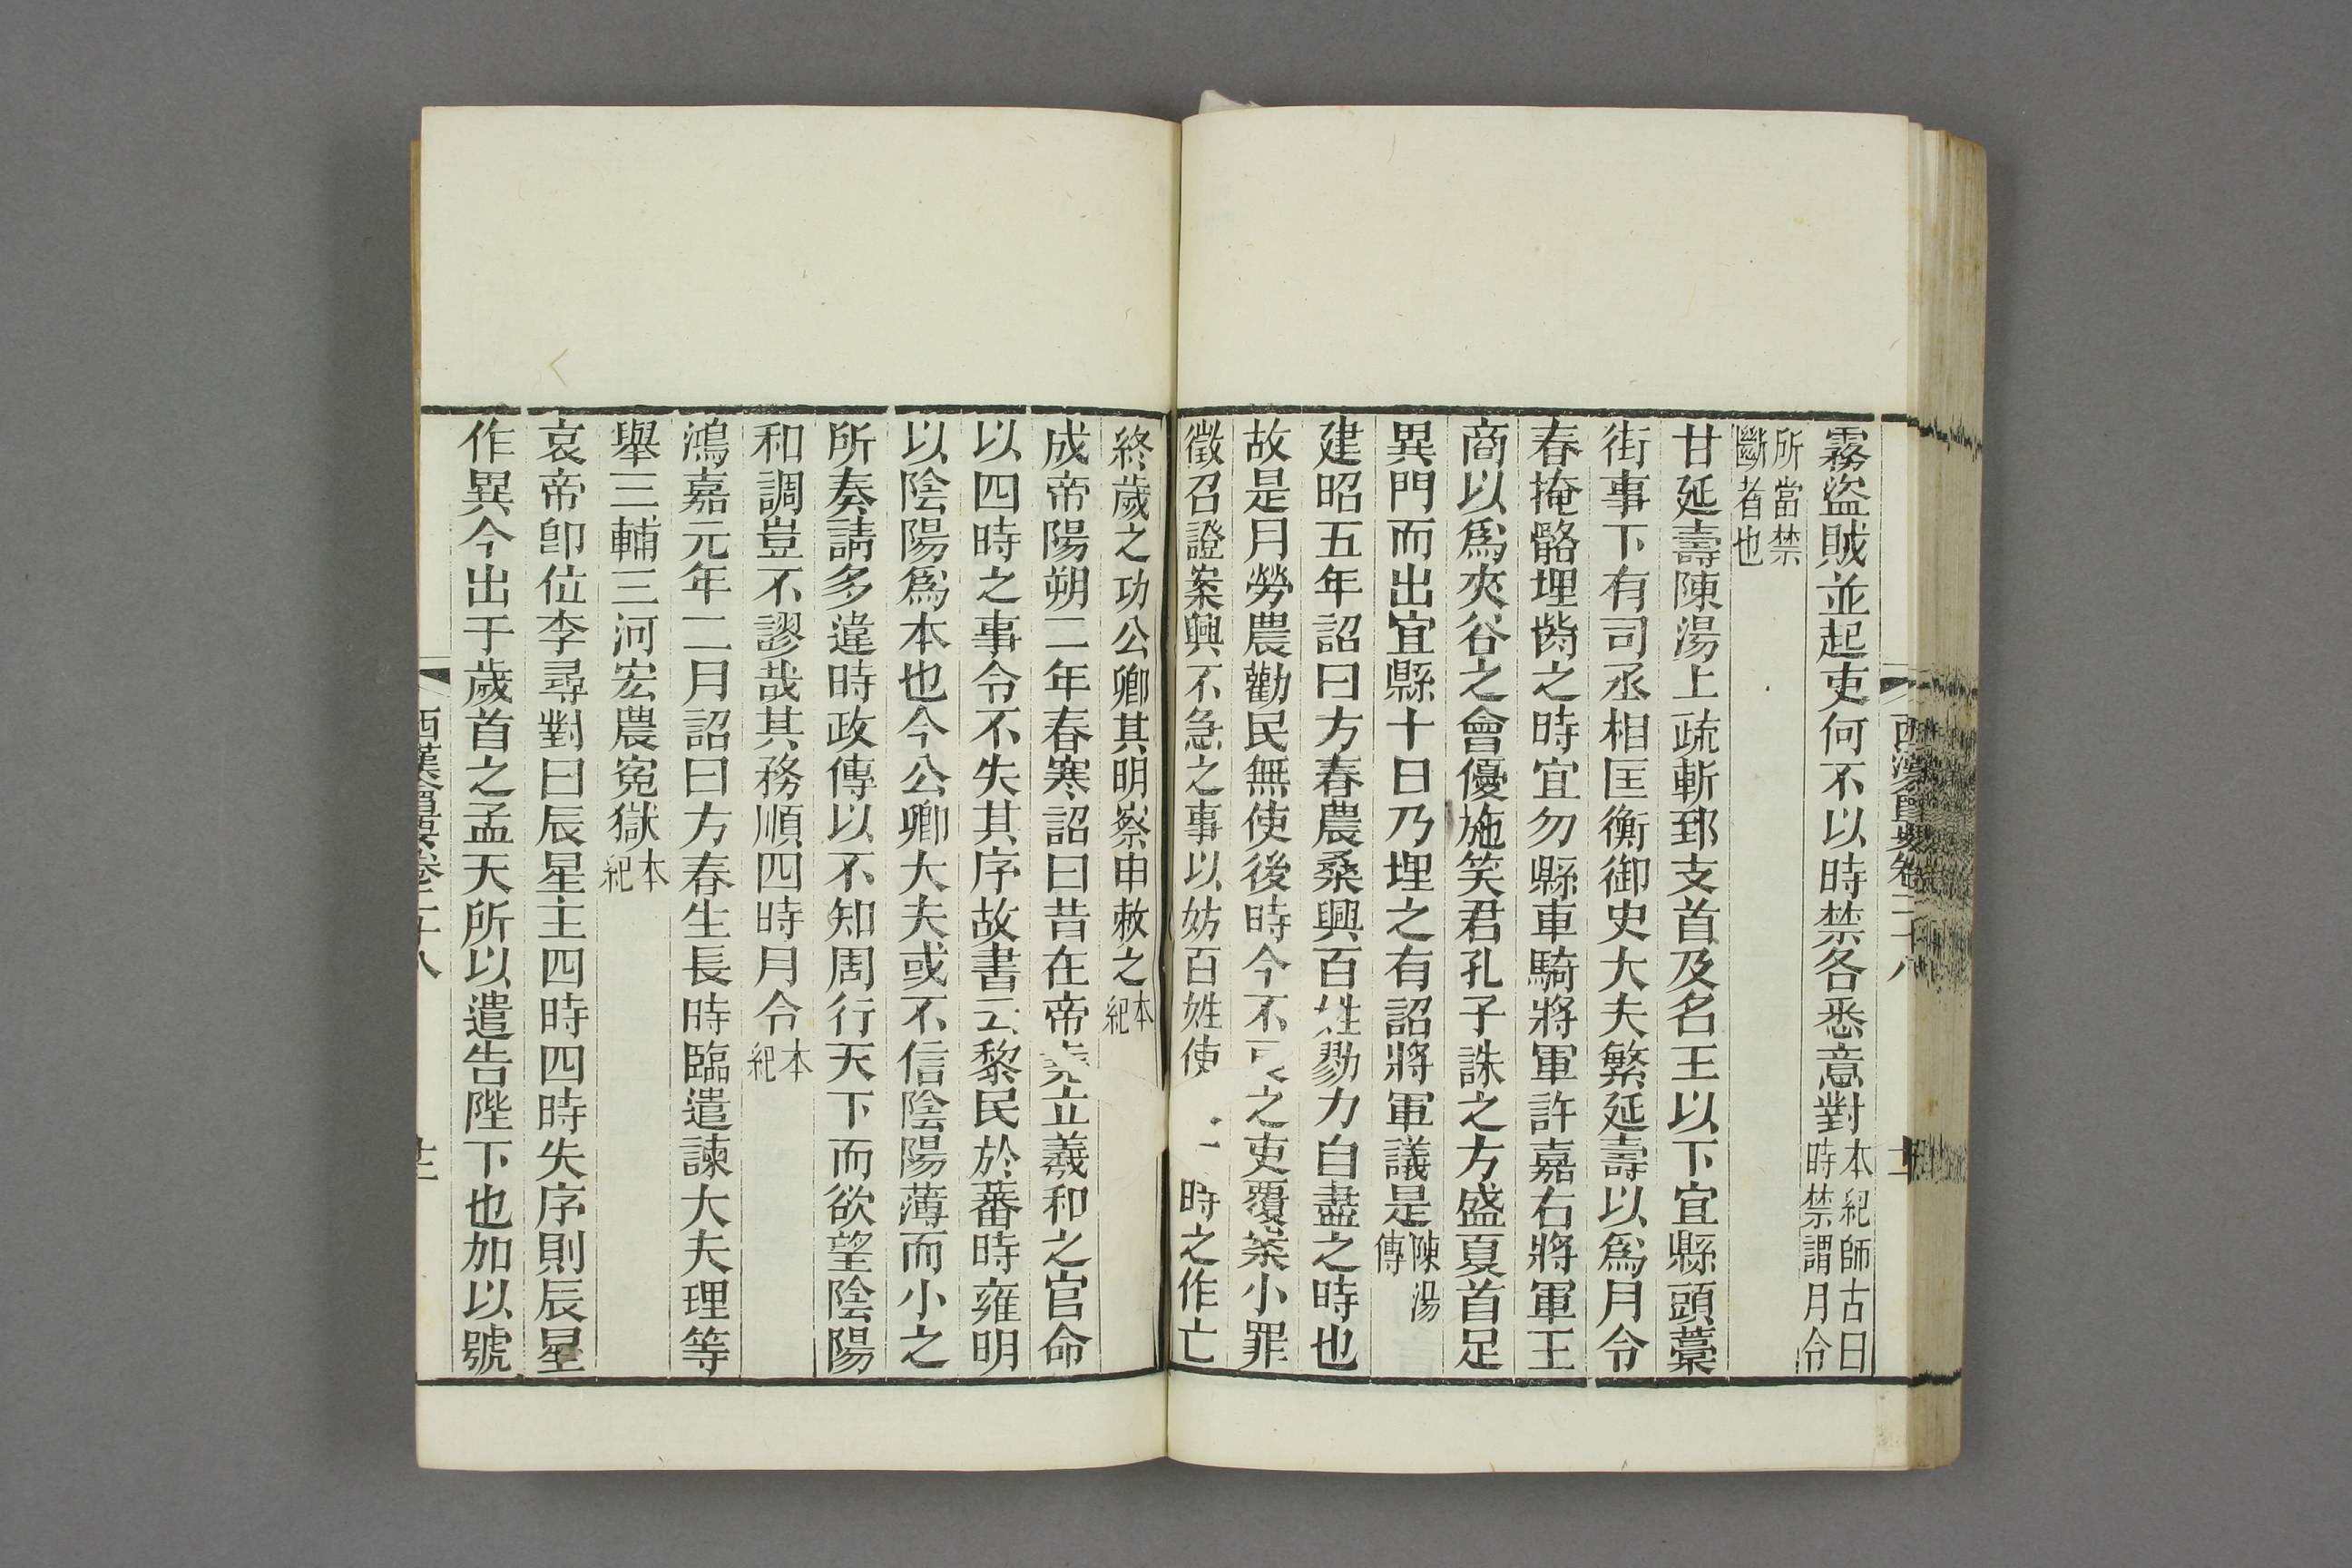 霧盜賊並起吏何不以時禁各悉意對本紀師古曰時禁謂月令
所當禁斷者也
甘延壽陳湯上疏斬郅支首及名王以下宜縣頭藁
街事下有司丞相匡衡御史大夫繁延壽以爲月令
春掩骼埋胔之時宜勿縣車騎將軍許嘉右將軍王
商以爲夾谷之會優施笑君孔子誅之方盛夏首足
異門而出宜縣十日乃埋之有詔將軍議是陳湯傳
建昭五年詔曰方春農桑興百姓勠力自盡之時也
故是月勞農勸民無使後時今不之吏覆案小罪
徵召證案興不急之事以妨百姓使時之作亡
終歲之功公卿其明察申敕之本紀
成帝陽朔二年春寒詔曰昔在帝堯立羲和之官命
以四時之事令不失其序故書云黎民於蕃時雍明
以陰陽爲本也今公卿大夫或不信陰陽薄而小之
所奏請多違時政傳以不知周行天下而欲望陰陽
和調豈不謬哉其務順四時月令本紀
鴻嘉元年二月詔曰方春生長時臨遣諫大夫理等
舉三輔三河宏農寃獄本紀
哀帝卽位李尋對曰辰星主四時四時失序則辰星
作異今出于歲首之孟天所以遣告陛下也加以號
西漢會要卷二十八